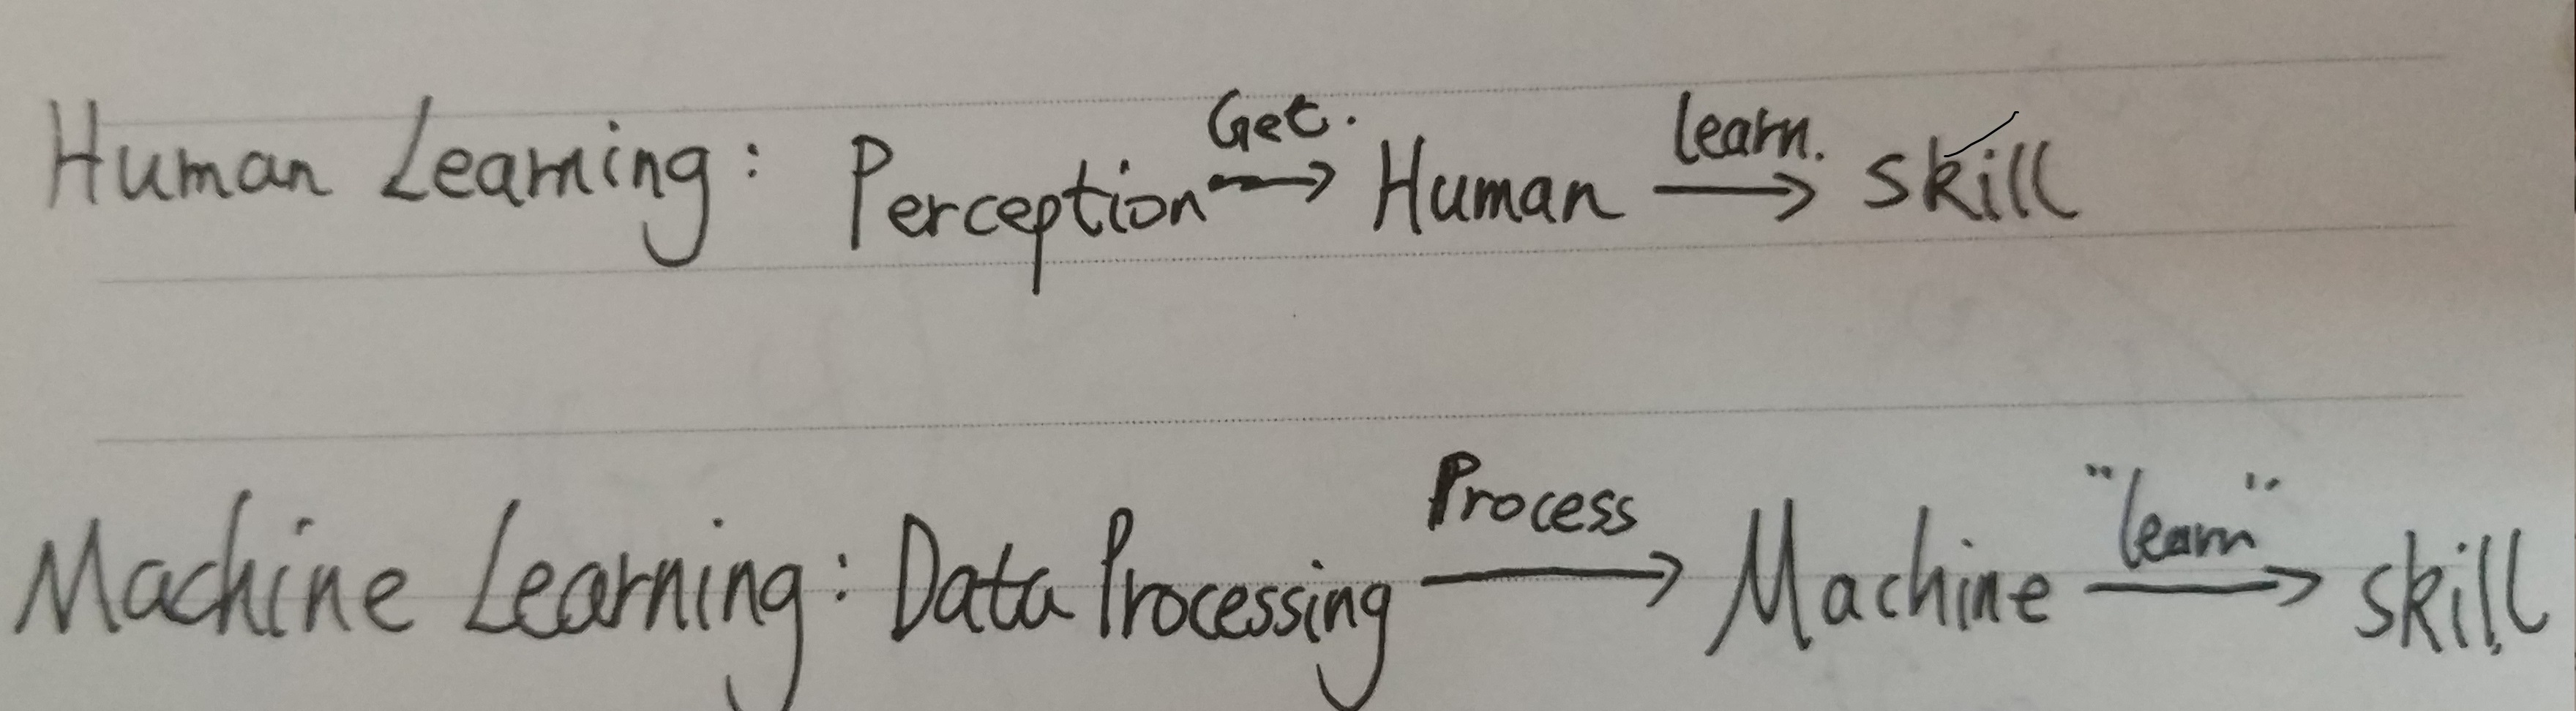 Human Learning: Perception Get. → Human learn. → skill
Machine Learning: Data Processing Process → Machine "learn" → skill